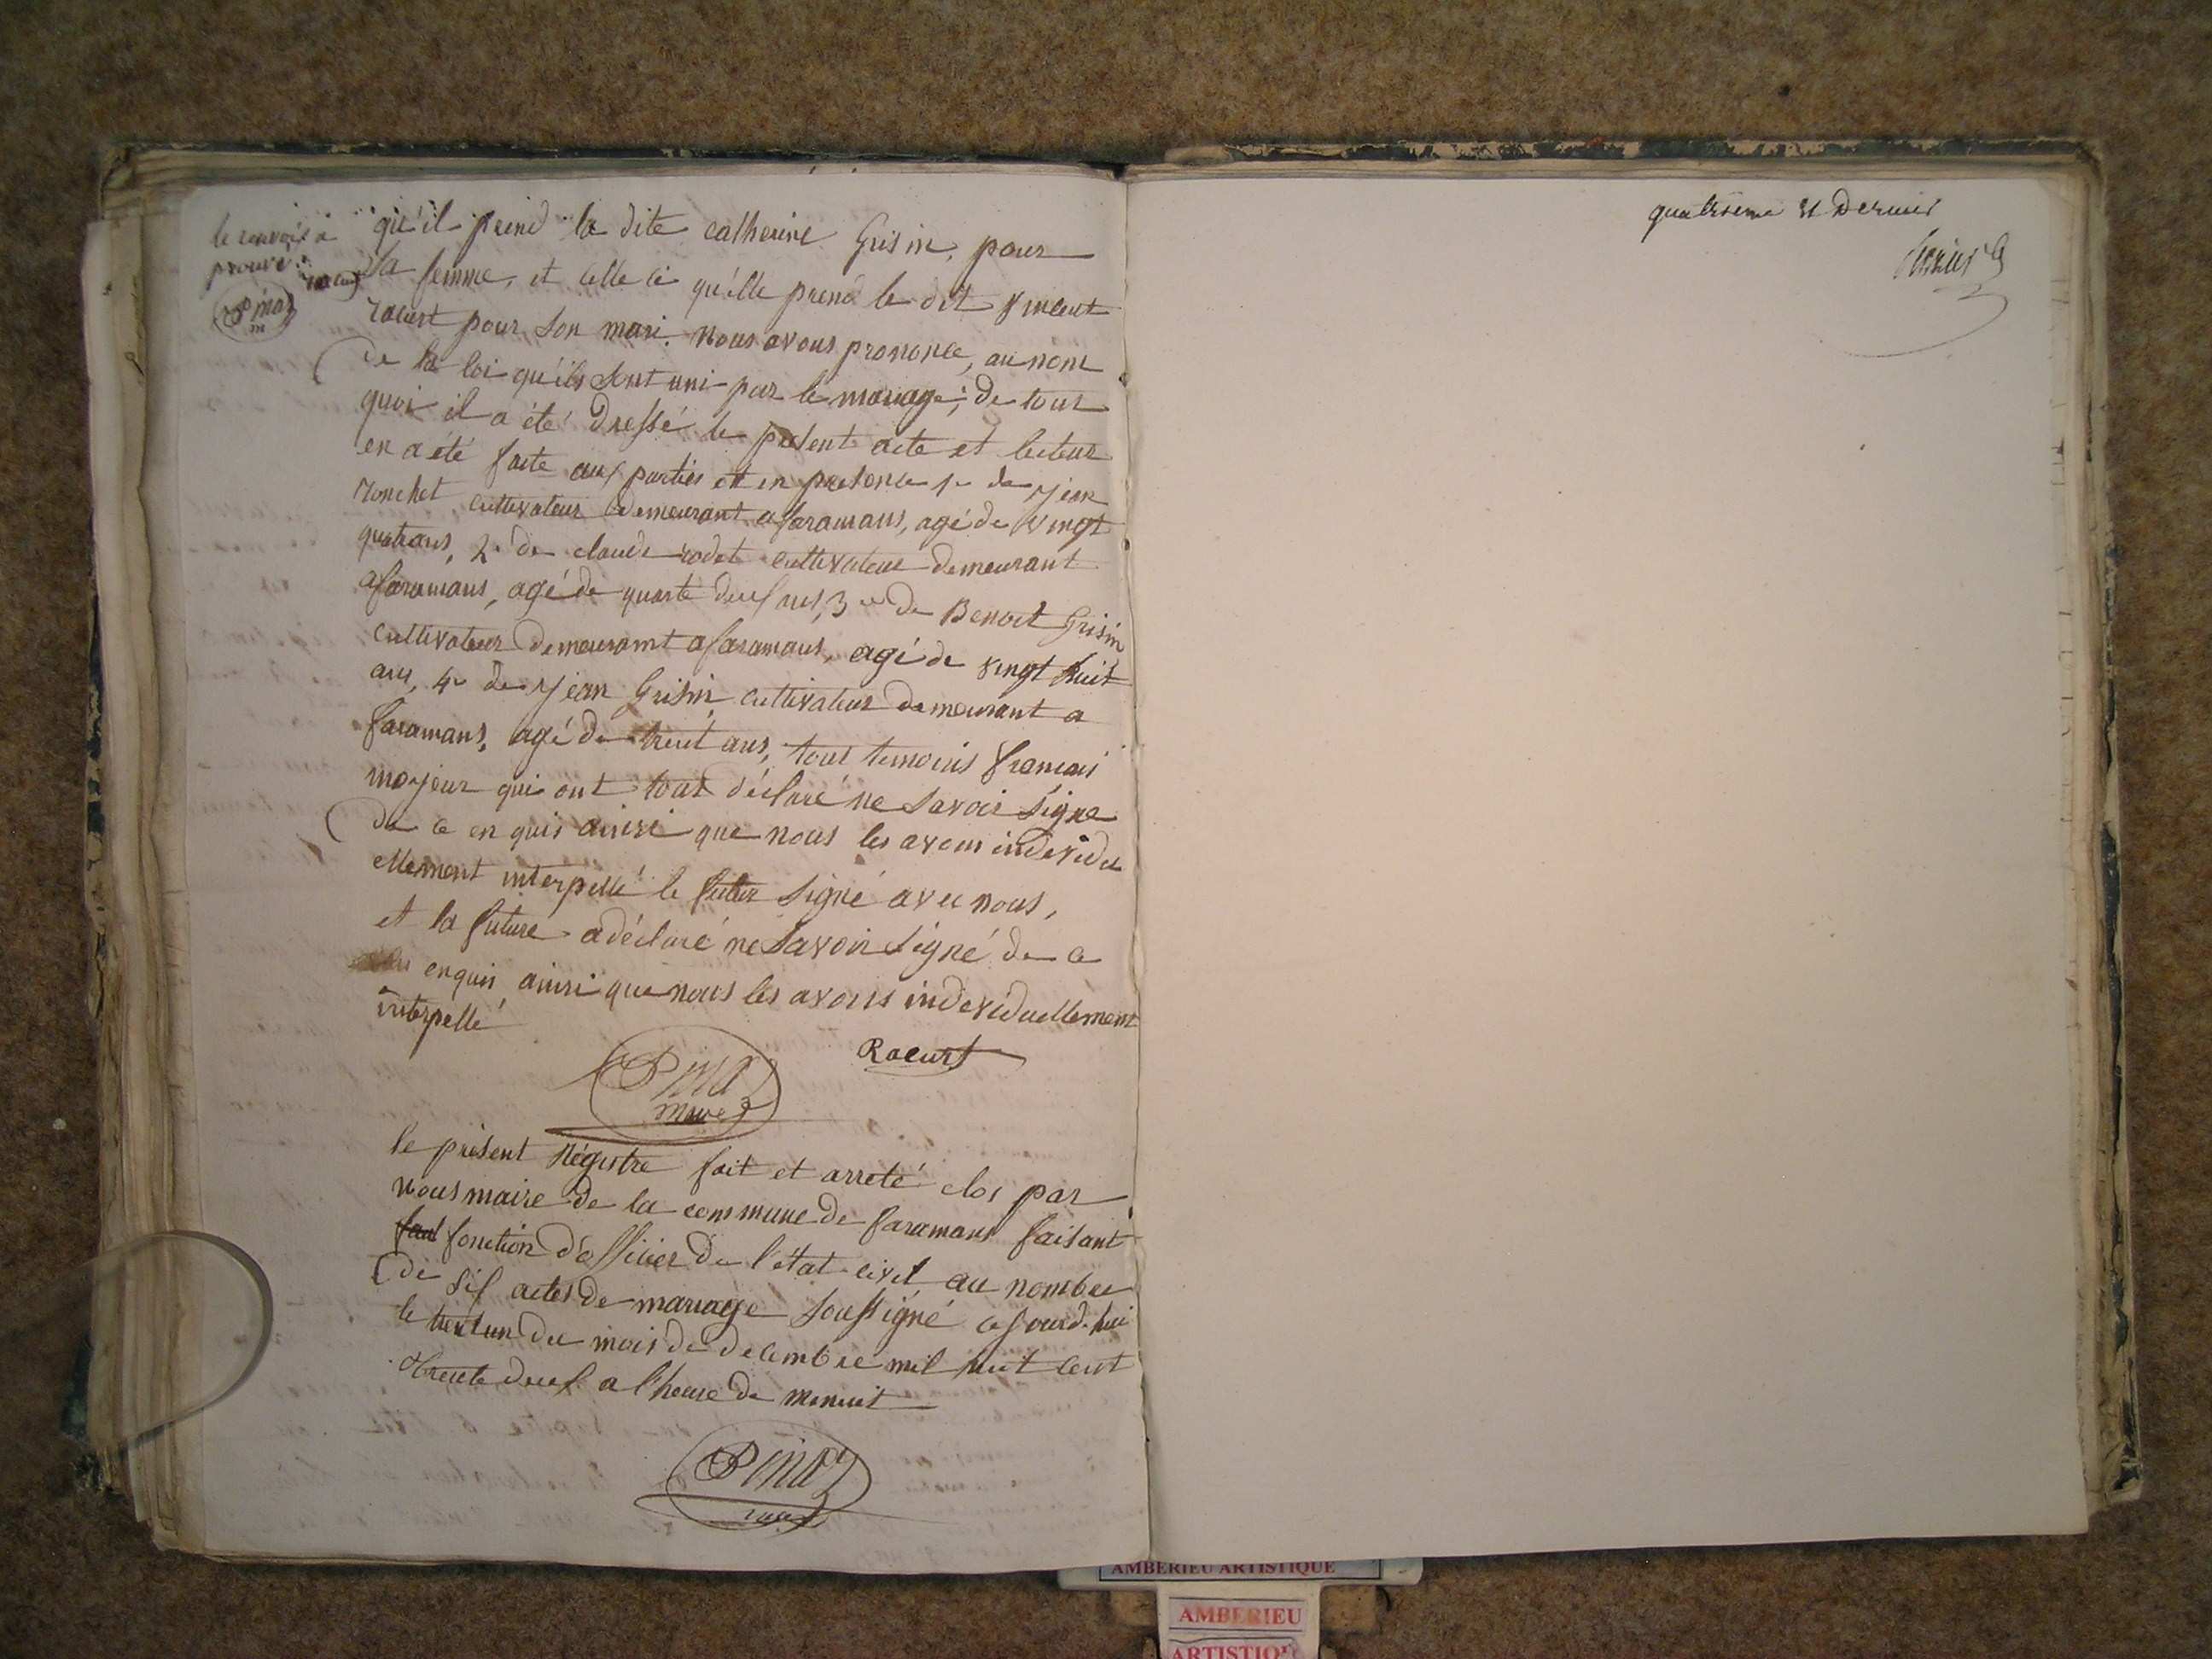 le renvoi a
prouvé
qu'il prend la dite catherine Grisin, pour
sa femme, et celle ci qu'elle prend le dit vincent
racurt pour son mari. nous avons prononcé, au nom
de la loi qu'ils sont uni par le mariage; de tout
quoi il a été dressé le present acte et lecteur
en a été faite aux parties et en presence 1e de jean
ronchet cultivateur demeurant a faramans, agé de vingt
quatrans, 2e de claude rodet cultivateur demeurant
a faramans, agé de quarte deux ans, 3e de Benoit Grisin
cultivateur demeuramt a faramans, agé de vingt huit
ans, 4e de jean Grisin, cultivateur demeurant a
faramans, agé de trent ans, tout temoins francais
majeur qui ont tout déclaré ne savoir signe
de ce en quis ainsi que nous les avons individu
ellement interpellé le futur signé avec nous,
et la future a déclaré ne savoir signé de ce
enquis ainsi que nous les avons individuellement
interpellé
Racurt
maire
le présent régistre fait et arreté clos par
nous maire de la commune de faramans faisant
fonction d'officier de l'état civil au nombre
de six actes de mariage soussigné cejourd'hui
le trentun du mois de decembre mil huit cent
trente deux a l'heure de menuit
quatrieme et Dernier
AMBERIEU ARTISTIQUE
AMBERIEU
ARTISTIQU